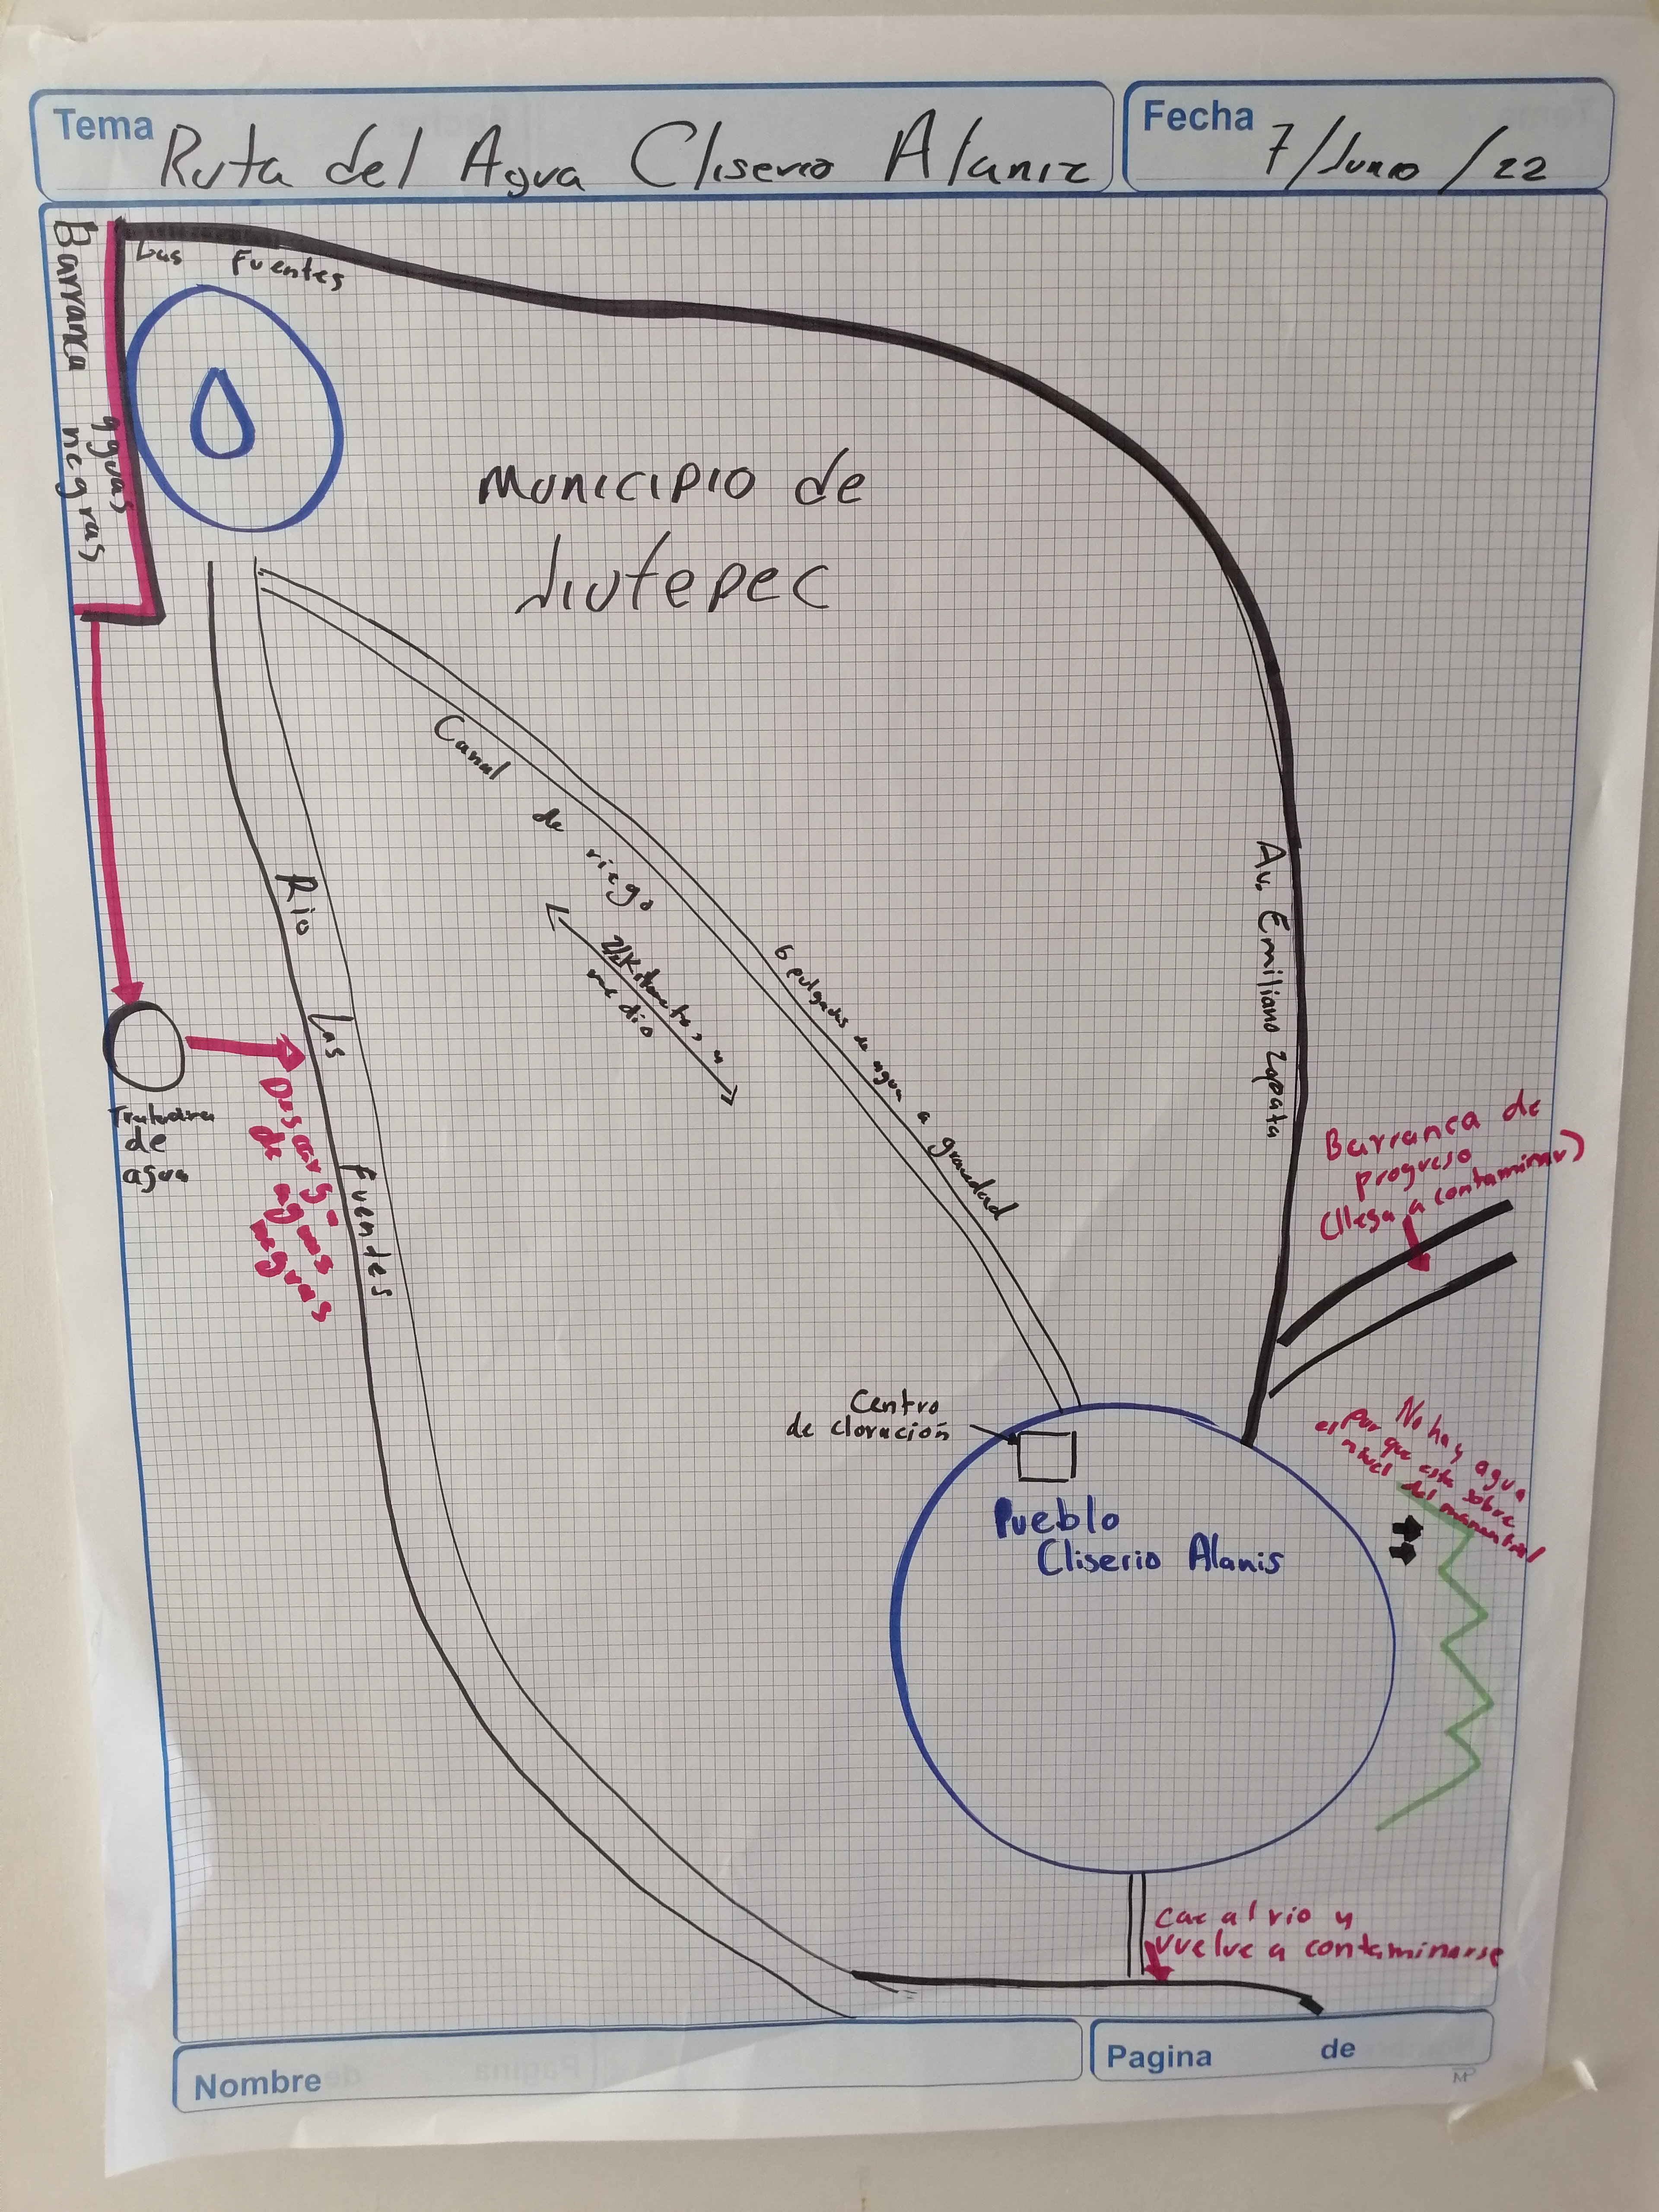 Tema
Ruta del Agua Cliserio Alaniz
Fecha
7/Junio/22
Las Fuentes
Barranca
aguas
negras
Municipio de
Jiutepec
Canal de riego
2 Kilometros y
medio
6 pulgadas de agua a gravedad
Av. Emiliano Zapata
Rio Las Fuendes
Tratadora
de
agua
Descarga
de aguas
negras
Barranca de
progreso
(llega a contaminar)
Centro
de cloración
Pueblo
Cliserio Alanis
No hay agua
por que esta sobre
el nivel del manantial
cae al rio y
vuelve a contaminarse
Nombre
Pagina de
MP